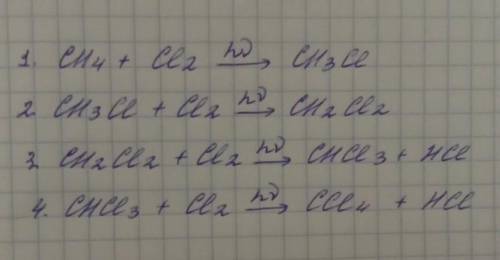 1. CH4 + Cl2 hν→ CH3Cl
2. CH3Cl + Cl2 hν→ CH2Cl2
3. CH2Cl2 + Cl2 hν→ CHCl3 + HCl
4. CHCl3 + Cl2 hν→ CCl4 + HCl